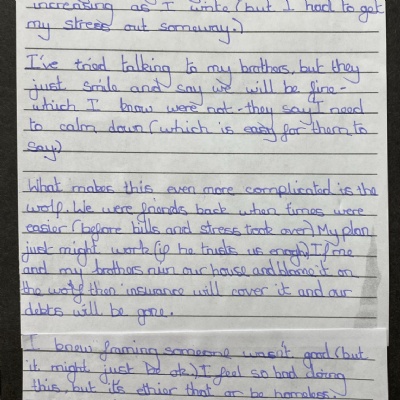 increasing as I write (but I had to get
my stress out someway.)
I've tried talking to my brothers, but they
just smile and say we will be fine -
which I know were not - they say I need
to calm down (which is easy for them to
say)
What makes this even more complicated is the
wolf. We were friends back when times were
easier (before bills and stress took over) My plan
just might work (if he trusts us enogh) If me
and my brothers ruin our house and blame it on
the wolf then insurance will cover it and our
debts will be gone.
I know framing someone wasn't good (but
it might just be ok) I feel so bad doing
this, but its ethier that or be homeless.